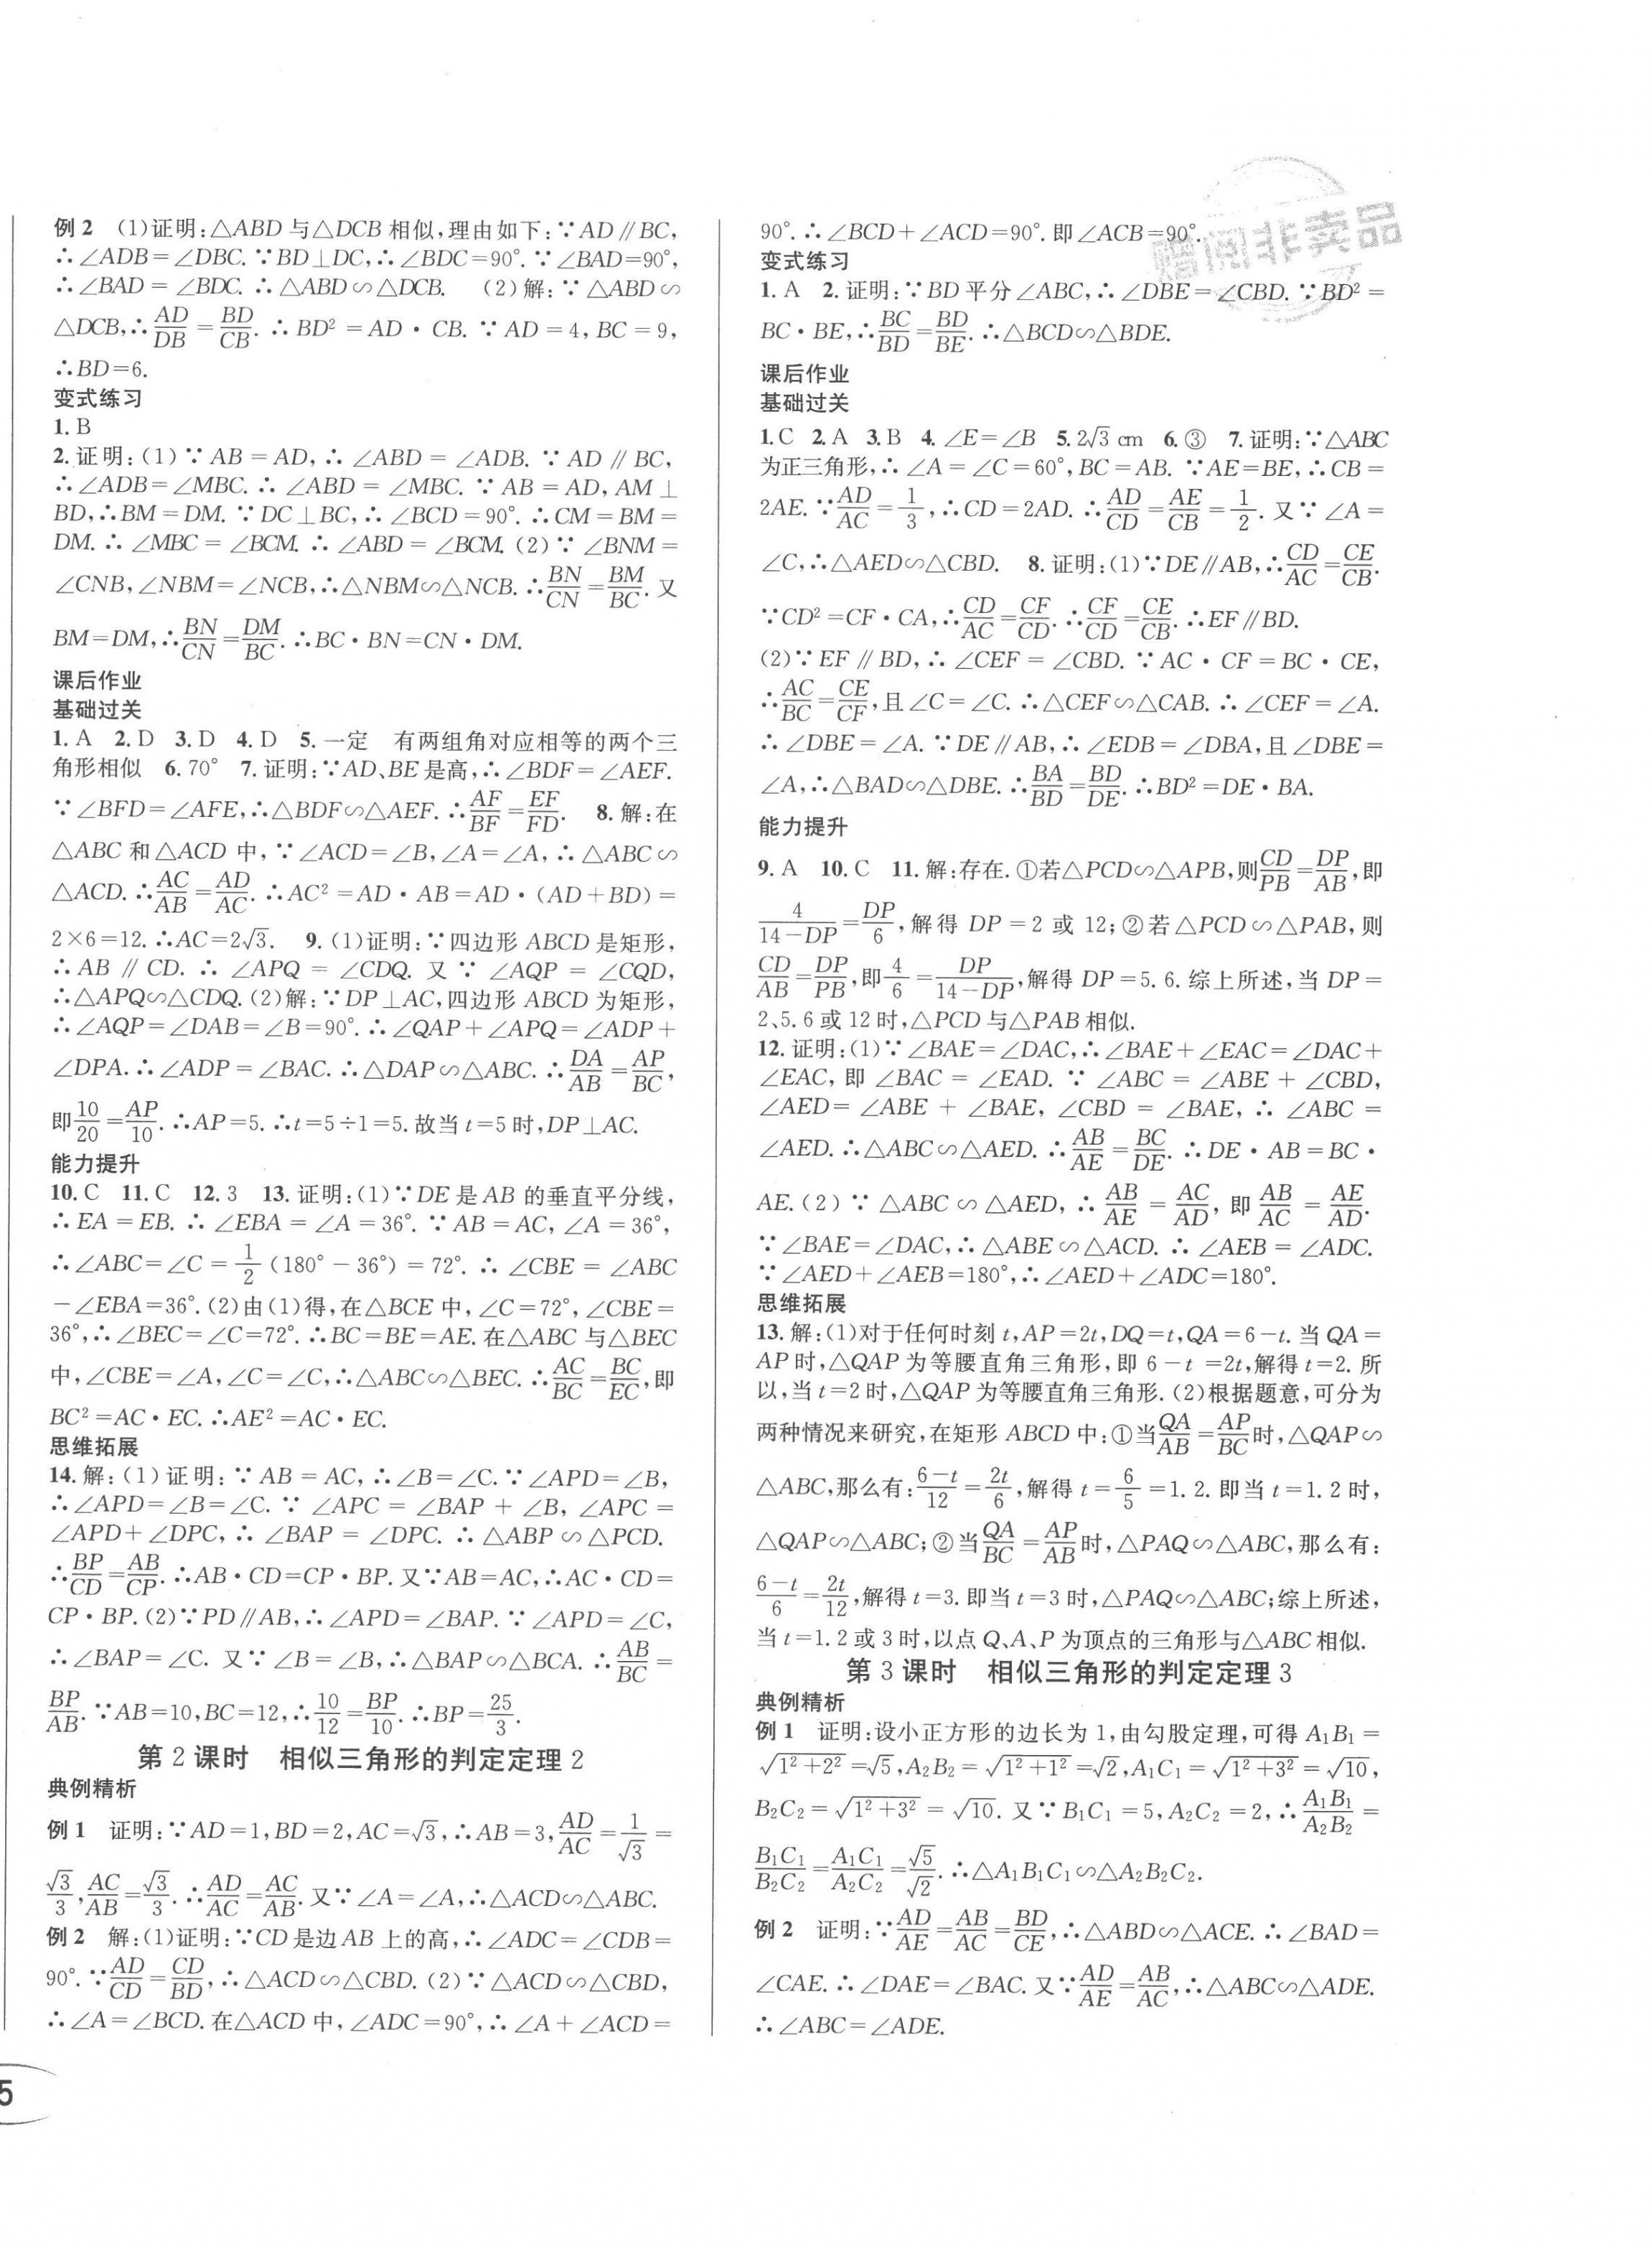 例2 (1)证明:△ABD与△DCB相似,理由如下:∵AD∥BC,
∴∠ADB=∠DBC.∵BD⊥DC,∴∠BDC=90°.∵∠BAD=90°,
∴∠BAD=∠BDC.∴△ABD∽△DCB. (2)解:∵△ABD∽
△DCB,∴AD/DB=BD/CB.∴BD²=AD·CB.∵AD=4,BC=9,
∴BD=6.
变式练习
1.B
2.证明:(1)∵AB=AD,∴∠ABD=∠ADB.∵AD∥BC,
∴∠ADB=∠MBC.∴∠ABD=∠MBC.∵AB=AD,AM⊥
BD,∴BM=DM.∵DC⊥BC,∴∠BCD=90°.∴CM=BM=
DM.∴∠MBC=∠BCM.∴∠ABD=∠BCM.(2)∵∠BNM=
∠CNB,∠NBM=∠NCB,∴△NBM∽△NCB.∴BN/CN=BM/BC.又
BM=DM,∴BN/CN=DM/BC.∴BC·BN=CN·DM.
课后作业
基础过关
1.A 2.D 3.D 4.D 5.一定 有两组角对应相等的两个三
角形相似 6.70° 7.证明:∵AD、BE是高,∴∠BDF=∠AEF.
∵∠BFD=∠AFE,∴△BDF∽△AEF.∴AF/BF=EF/FD. 8.解:在
△ABC和△ACD中,∵∠ACD=∠B,∠A=∠A,∴△ABC∽
△ACD.∴AC/AB=AD/AC.∴AC²=AD·AB=AD·(AD+BD)=
2×6=12.∴AC=2√3. 9.(1)证明:∵四边形ABCD是矩形,
∴AB∥CD.∴∠APQ=∠CDQ.又∵∠AQP=∠CQD,
∴△APQ∽△CDQ.(2)解:∵DP⊥AC,四边形ABCD为矩形,
∴∠AQP=∠DAB=∠B=90°.∴∠QAP+∠APQ=∠ADP+
∠DPA.∴∠ADP=∠BAC.∴△DAP∽△ABC.∴DA/AB=AP/BC,
即10/20=AP/10.∴AP=5.∴t=5÷1=5.故当t=5时,DP⊥AC.
能力提升
10.C 11.C 12.3 13.证明:(1)∵DE是AB的垂直平分线,
∴EA=EB.∴∠EBA=∠A=36°.∵AB=AC,∠A=36°,
∴∠ABC=∠C=1/2(180°-36°)=72°.∴∠CBE=∠ABC
-∠EBA=36°.(2)由(1)得,在△BCE中,∠C=72°,∠CBE=
36°,∴∠BEC=∠C=72°.∴BC=BE=AE.在△ABC与△BEC
中,∠CBE=∠A,∠C=∠C,∴△ABC∽△BEC.∴AC/BC=BC/EC,即
BC²=AC·EC.∴AE²=AC·EC.
思维拓展
14.解:(1)证明:∵AB=AC,∴∠B=∠C.∵∠APD=∠B,
∴∠APD=∠B=∠C.∵∠APC=∠BAP+∠B,∠APC=
∠APD+∠DPC,∴∠BAP=∠DPC.∴△ABP∽△PCD.
∴BP/CD=AB/CP.∴AB·CD=CP·BP.又∵AB=AC,∴AC·CD=
CP·BP.(2)∵PD∥AB,∴∠APD=∠BAP.∵∠APD=∠C,
∴∠BAP=∠C.又∵∠B=∠B,∴△BAP∽△BCA.∴AB/BC=
BP/AB.∵AB=10,BC=12,∴10/12=BP/10.∴BP=25/3.
第2课时 相似三角形的判定定理2
典例精析
例1 证明:∵AD=1,BD=2,AC=√3,∴AB=3,AD/AC=1/√3=
√3/3,AC/AB=√3/3.∴AD/AC=AC/AB.又∵∠A=∠A,∴△ACD∽△ABC.
例2 解:(1)证明:∵CD是边AB上的高,∴∠ADC=∠CDB=
90°.∵AD/CD=CD/BD,∴△ACD∽△CBD.(2)∵△ACD∽△CBD,
∴∠A=∠BCD.在△ACD中,∠ADC=90°,∴∠A+∠ACD=
5
90°.∴∠BCD+∠ACD=90°.即∠ACB=90°.
赠阅非卖品
变式练习
1.A 2.证明:∵BD平分∠ABC,∴∠DBE=∠CBD.∵BD²=
BC·BE,∴BC/BD=BD/BE.∴△BCD∽△BDE.
课后作业
基础过关
1.C 2.A 3.B 4.∠E=∠B 5.2√3 cm 6.③ 7.证明:∵△ABC
为正三角形,∴∠A=∠C=60°,BC=AB.∵AE=BE,∴CB=
2AE.∵AD/AC=1/3,∴CD=2AD.∴AD/CD=AE/CB=1/2.又∵∠A=
∠C,∴△AED∽△CBD. 8.证明:(1)∵DE∥AB,∴CD/AC=CE/CB.
∵CD²=CF·CA,∴CD/AC=CF/CD.∴CF/CD=CE/CB.∴EF∥BD.
(2)∵EF∥BD,∴∠CEF=∠CBD.∵AC·CF=BC·CE,
∴AC/BC=CE/CF,且∠C=∠C.∴△CEF∽△CAB.∴∠CEF=∠A.
∴∠DBE=∠A.∵DE∥AB,∴∠EDB=∠DBA,且∠DBE=
∠A,∴△BAD∽△DBE.∴BA/BD=BD/DE.∴BD²=DE·BA.
能力提升
9.A 10.C 11.解:存在.①若△PCD∽△APB,则CD/PB=DP/AB,即
4/(14-DP)=DP/6,解得DP=2或12;②若△PCD∽△PAB,则
CD/AB=DP/PB,即4/6=DP/(14-DP),解得DP=5.6.综上所述,当DP=
2、5.6或12时,△PCD与△PAB相似.
12.证明:(1)∵∠BAE=∠DAC,∴∠BAE+∠EAC=∠DAC+
∠EAC,即∠BAC=∠EAD.∵∠ABC=∠ABE+∠CBD,
∠AED=∠ABE+∠BAE,∠CBD=∠BAE,∴∠ABC=
∠AED.∴△ABC∽△AED.∴AB/AE=BC/DE.∴DE·AB=BC·
AE.(2)∵△ABC∽△AED,∴AB/AE=AC/AD,即AB/AC=AE/AD.
∵∠BAE=∠DAC,∴△ABE∽△ACD.∴∠AEB=∠ADC.
∵∠AED+∠AEB=180°,∴∠AED+∠ADC=180°.
思维拓展
13.解:(1)对于任何时刻t,AP=2t,DQ=t,QA=6-t.当QA=
AP时,△QAP为等腰直角三角形,即6-t=2t,解得t=2.所
以,当t=2时,△QAP为等腰直角三角形.(2)根据题意,可分为
两种情况来研究,在矩形ABCD中:①当QA/AB=AP/BC时,△QAP∽
△ABC,那么有:(6-t)/12=2t/6,解得t=6/5=1.2.即当t=1.2时,
△QAP∽△ABC;②当QA/BC=AP/AB时,△PAQ∽△ABC,那么有:
(6-t)/6=2t/12,解得t=3.即当t=3时,△PAQ∽△ABC;综上所述,
当t=1.2或3时,以点Q、A、P为顶点的三角形与△ABC相似.
第3课时 相似三角形的判定定理3
典例精析
例1 证明:设小正方形的边长为1,由勾股定理,可得A₁B₁=
√(1²+2²)=√5,A₂B₂=√(1²+1²)=√2,A₁C₁=√(1²+3²)=√10,
B₂C₂=√(1²+3²)=√10.又∵B₁C₁=5,A₂C₂=2,∴A₁B₁/A₂B₂=
B₁C₁/B₂C₂=A₁C₁/A₂C₂=√5/√2.∴△A₁B₁C₁∽△A₂B₂C₂.
例2 证明:∵AD/AE=AB/AC=BD/CE,∴△ABD∽△ACE.∴∠BAD=
∠CAE.∴∠DAE=∠BAC.又∵AD/AE=AB/AC,∴△ABC∽△ADE.
∴∠ABC=∠ADE.